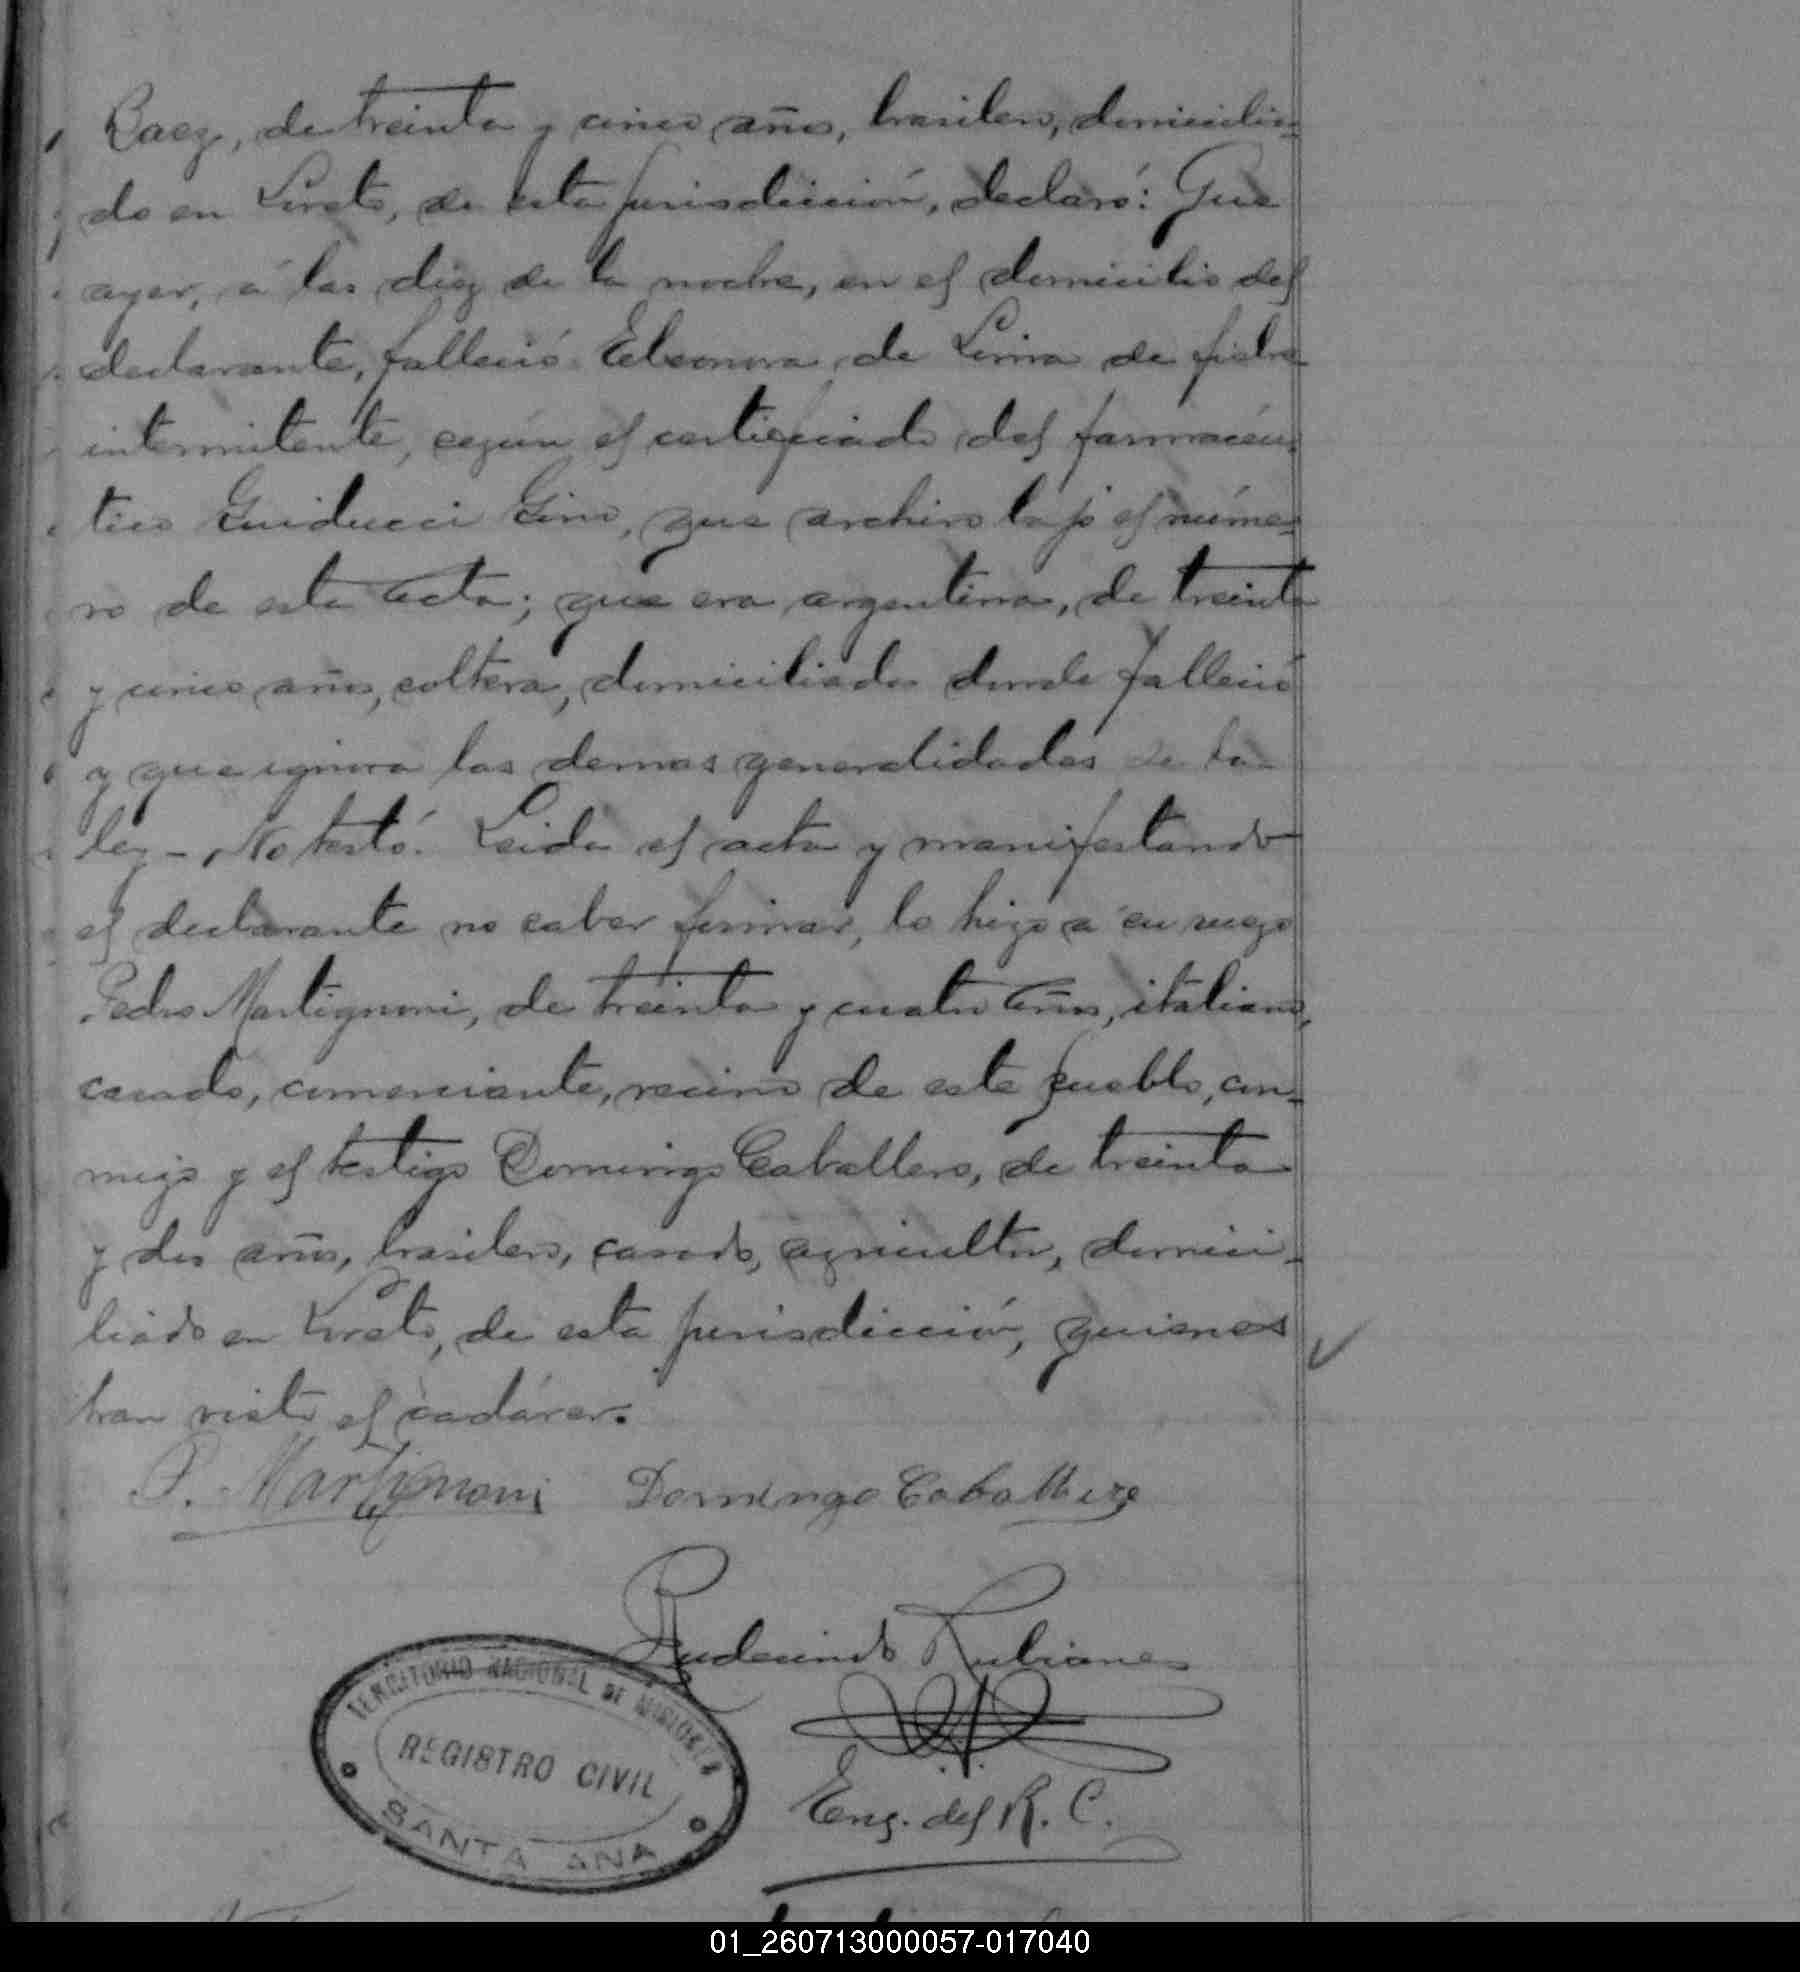 Baez, de treinta y cinco años, brasilero, domicilia-
do en Loreto, de esta jurisdicción, declaró: Que
ayer, á las diez de la noche, en el domicilio del
declarante, falleció Eleonora de Lima de fiebre
intermitente, según el certificado del farmacéu-
tico Guiducci Gino, que archivo bajo el núme-
ro de esta acta; que era argentina, de treinta
y cinco años, soltera, domiciliada donde falleció
y que ignora las demas generalidades de la
ley - No testó. Leida el acta y manifestando
el declarante no saber firmar, lo hizo a su ruego
Pedro Martignoni, de treinta y cuatro años, italiano,
casado, comerciante, vecino de este pueblo, con-
migo y el testigo Domingo Caballero, de treinta
y dos años, brasilero, casado, agricultor, domici-
liado en Loreto, de esta jurisdicción, quienes
han visto el cadáver.
P. Martignoni Domingo Caballero
Rudecindo Rubianes
Enc. del R. C.
TERRITORIO NACIONAL DE MISIONES
REGISTRO CIVIL
SANTA ANA
01_260713000057-017040